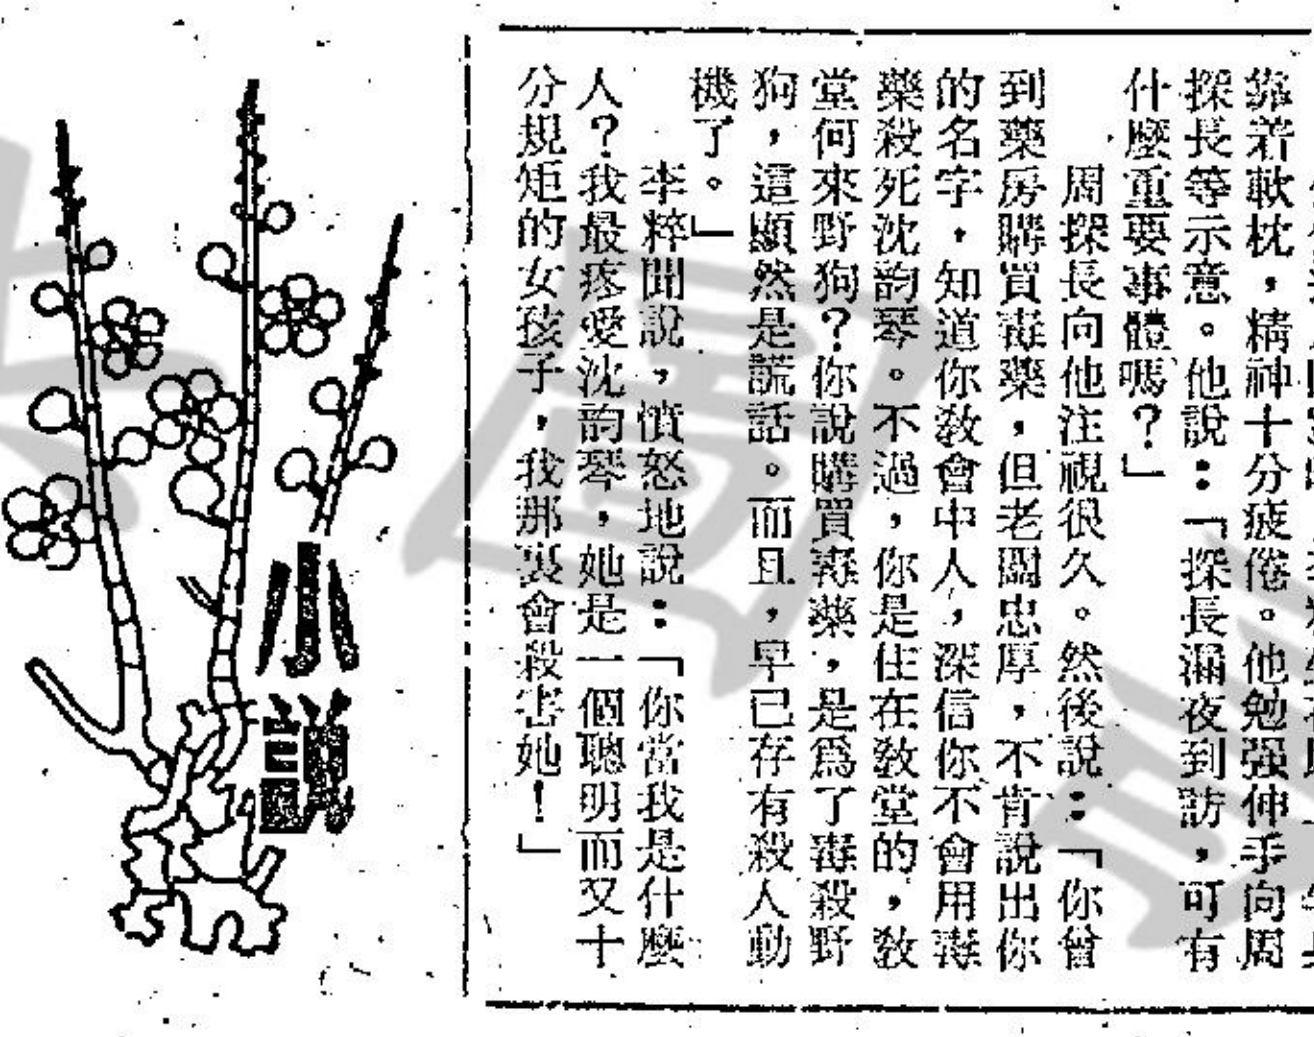 靠着軟枕，精神十分疲倦。他勉强伸手向周
探長等示意。他說：「探長漏夜到訪，可有
什麼重要事體嗎？」
周探長向他注視很久。然後說：「你曾
到藥房購買毒藥，但老闆忠厚，不肯說出你
的名字，知道你教會中人，深信你不會用毒
藥殺死沈韵琴。不過，你是住在教堂的，教
堂何來野狗？你說購買毒藥，是爲了毒殺野
狗，這顯然是謊話。而且，早已存有殺人動
機了。」
李粹聞說，憤怒地說：「你當我是什麼
人？我最疼愛沈韵琴，她是一個聰明而又十
分規矩的女孩子，我那裏會殺害她！」
小說
圖